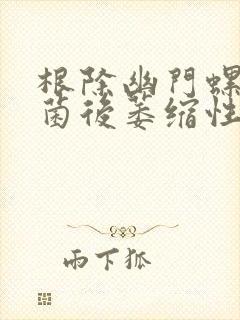 根除幽門螺
菌後萎縮性
雨下狐